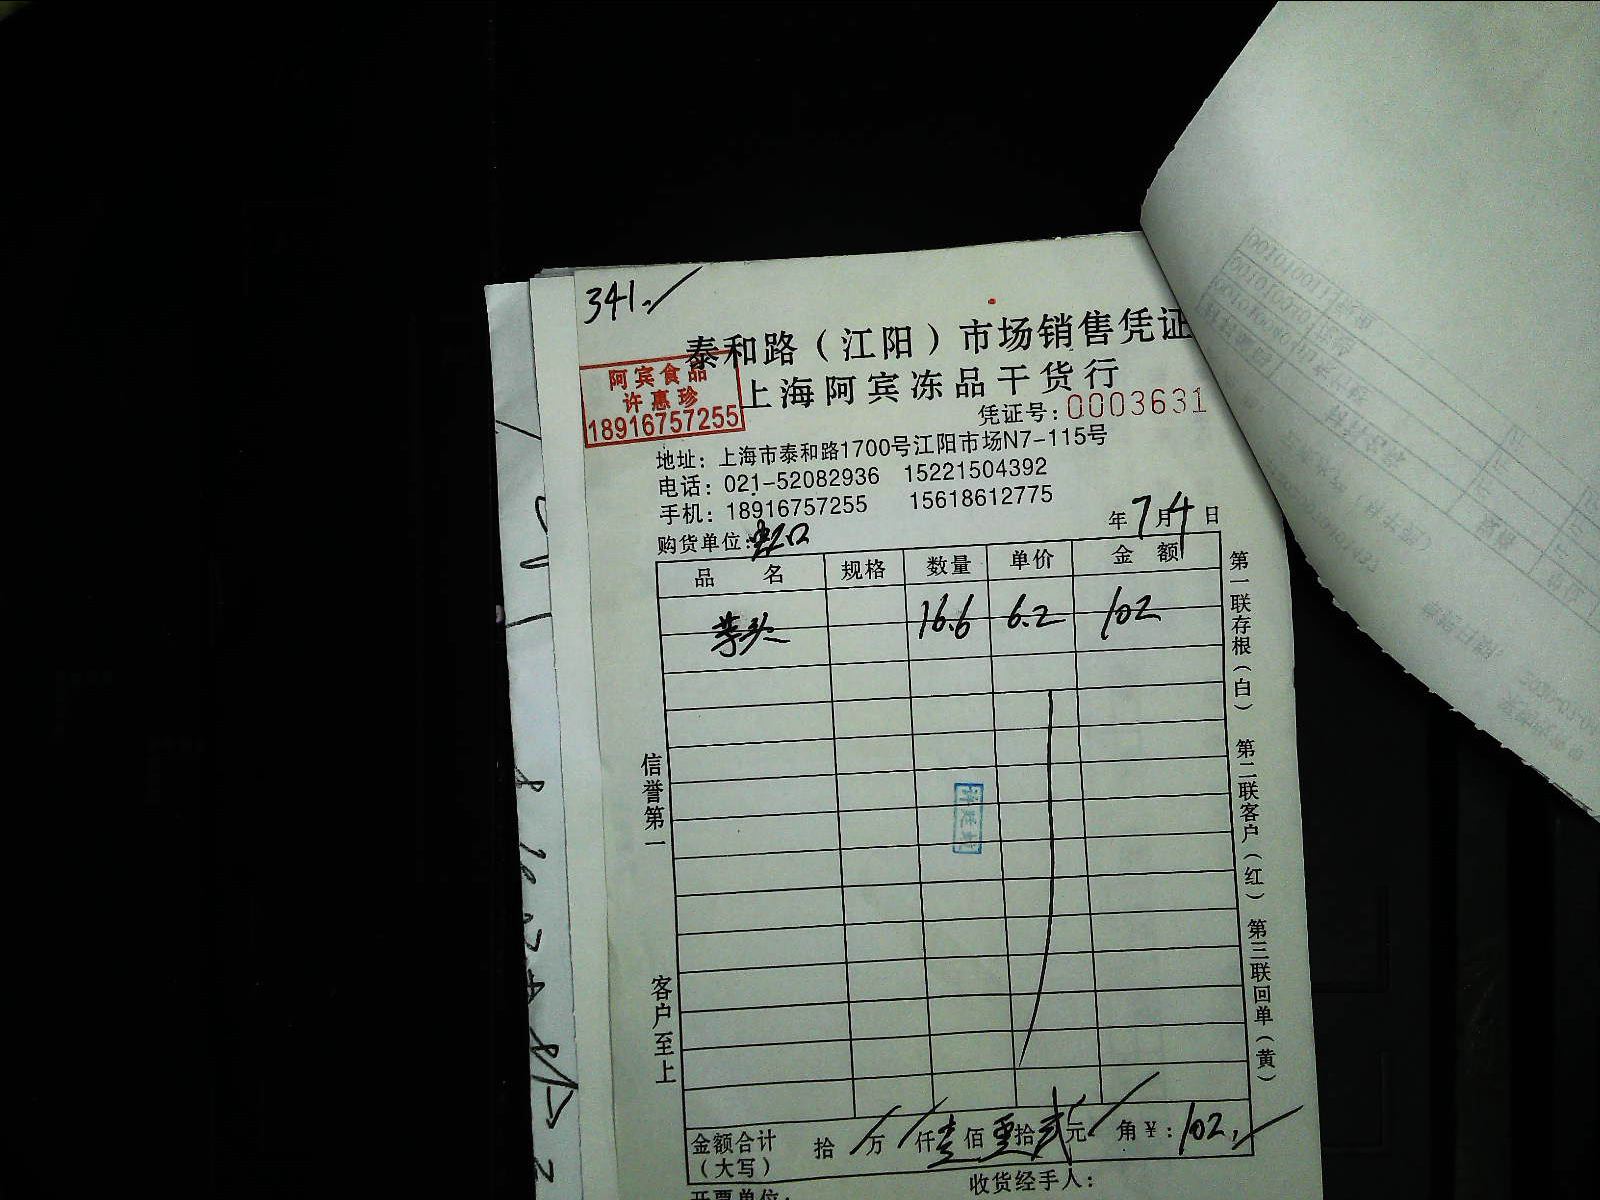 341.
泰和路（江阳）市场销售凭证
上海阿宾冻品干货行
阿宾食品
许惠珍
18916757255
凭证号：0003631
地址：上海市泰和路1700号江阳市场N7-115号
电话：021-52082936 15221504392
手机：18916757255 15618612775
年7月4日
购货单位：虹口
品名 规格 数量 单价 金额
芋头 16.6 6.2 102
信誉第一
客户至上
第一联存根（白） 第二联客户（红） 第三联回单（黄）
金额合计（大写） 拾 万 仟壹佰零拾贰元 角 ¥：102.
收货经手人：
开票单位：